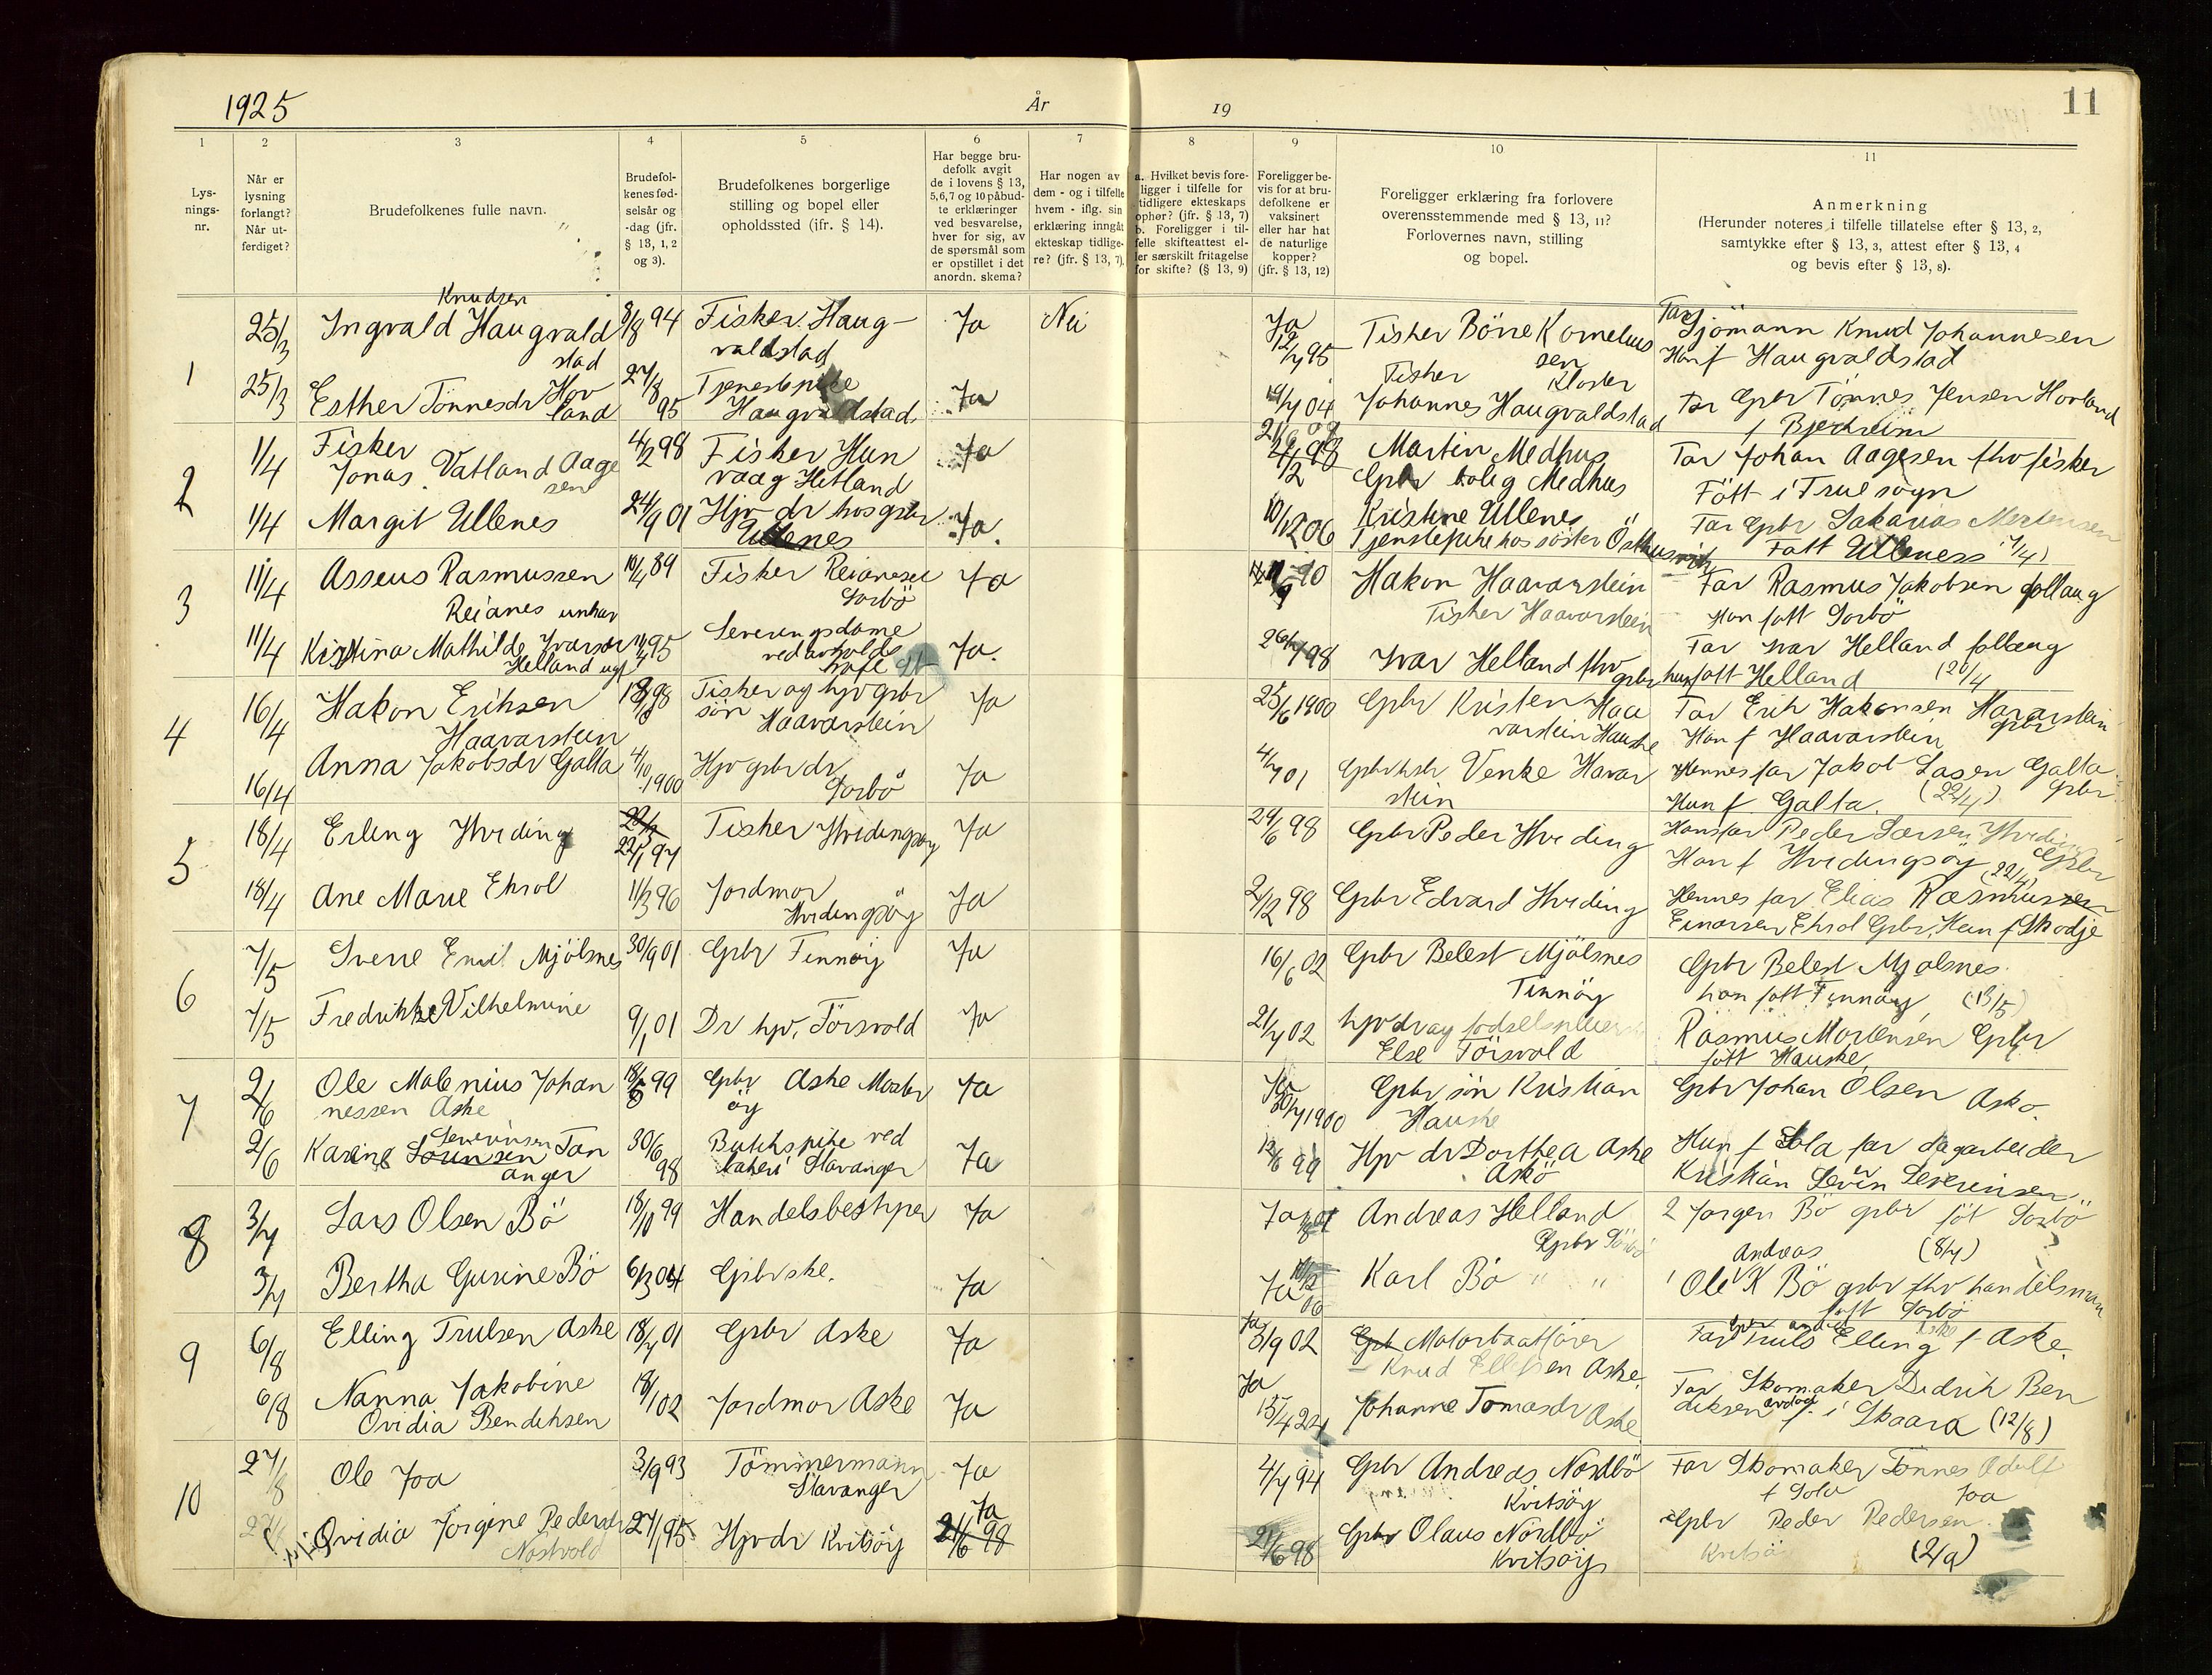 1925
År
19
11
1
2
3
4
5
6
7
8
9
10
11
Lys-
nings-
nr.
Når er
lysning
forlangt?
Når ut-
ferdiget?
Brudefolkenes fulle navn.
Brudefol-
kenes fød-
selsår og
-dag (jfr.
§ 13, 1, 2
og 3).
Brudefolkenes borgerlige
stilling og bopel eller
opholdssted (ifr. § 14).
Har begge bru-
defolk avgit
de i lovens § 13,
5,6,7 og 10 påbud-
te erklæringer
ved besvarelse,
hver for sig, av
de spørsmål som
er opstillet i det
anordn. skema?
Har nogen av
dem - og i tilfelle
hvem - iflg. sin
erklæring inngåt
ekteskap tidlige-
re? (jfr. § 13, 7).
a. Hvilket bevis fore-
ligger i tilfelle for
tidligere ekteskaps
ophør? (jfr. § 13, 7)
b. Foreligger i til-
felle skifteattest el-
ler særskilt fritagelse
for skifte? (§ 13, 9)
Foreligger be-
vis for at bru-
defolkene er
vaksinert
eller har hat
de naturlige
kopper?
(jfr. § 13, 12)
Foreligger erklæring fra forlovere
overensstemmende med § 13, 11?
Forlovernes navn, stilling
og bopel.
Anmerkning
(Herunder noteres i tilfelle tillatelse efter § 13, 2,
samtykke efter § 13, 3, attest efter § 13, 4
og bevis efter § 13, 8).
1
25/3 Ingvald Knudsen Haugvald
stad
8/8 94 Fisker Haug-
valdstad
Ja Nei
Ja
95 Fisker Börre Kornelius
sen
Fisker Kloster
Far Sjömann Knud Johannesen
Han f Haugvaldstad
25/3 Esther Tönnesdr Hov
land
27/8
95
Tjenestepike
Haugvaldstad
Ja
04 Johannes Haugvaldstad
Far Gpbr Tönnes Jensen Hovland
f Bjerkreim
2
1/4 Fisker
Jonas Vatland Aage
sen
4/2 98 Fisker Hun
vaag Hetland
Ja
Martin Medhus
Gpbr bolig Medhus
Far Johan Aagesen fhv fisker
Fött i sogn
1/4 Margit Ullenes
24/9 01 Hjv dr hos gpbr
Ullenes
Ja.
10/12 06 Kristine Ullenes
Tjenstepike hos söster
Far Gpbr Sakarias
Fött Ullenes
3
11/4 Asseus Rasmussen
Reianes unkar
10/4 89 Fisker
Sorbö
Ja
90 Hakon Haavarstein
Fisker Haavarstein
Far Rasmus Jakobsen
Han fött Sorbö
11/4 Kristina Mathilde Ivarsdr
Helland ugf
95
Ja.
26/7 98 Ivar Helland fhv
gpbr
Far Ivar Helland
hun fött Helland (20/4
4
16/4 Hakon Eriksen
Haavarstein
98 Fisker og hjv gpbr
sön Haavarstein
Ja
25/6 1900 Gpbr Kristen Haa
varstein Hauske
Far Erik Hakonsen Havarstein
gpbr
Han f Haavarstein
16/4 Anna Jakobsdr Galta
4/10
1900
Hjv gpbr dr
Sorbö
Ja
4/7 01 Venke Havar
stein
Hennes far Jakob Galta
Gpbr
Hun f Galta. (22/4)
5
18/4 Erling Hviding
22/1 97
Fisker Hvidingsöy
Ja
29/6 98 Gpbr Peder Hviding
Hans far Peder Larsen Hviding
Gpbr
Han f Hvidingsöy (22/4)
18/4 Ane Marie Ekrol
11/3 96 Jordmor
Hvidingsöy
Ja
2/12 98 Gpbr Edvard Hviding
Hennes far Elias Rasmussen
Einarsen Ekrol Gpbr. Hun f Skodje
6
7/5 Sverre Emil Mjölsnes
30/9 01 Gpbr Finnöy
Ja
16/6 02 Gpbr Belest Mjölsnes
Finnöy
Gpbr Belest Mjolsnes
han fött Finnöy (13/5)
7/5 Fredrikke Vilhelmine
9/1 01 Dr hjv, Försvold
Ja
21/7 02 hjv dr
Else Försvold
Rasmus Mortensen Gpbr
fött Hauske
7
2/6 Ole Malenius Johan
nessen Aske
99 Gpbr Aske Moster
öy
Ja
Ja
1900
Gpbr sön Kristian
Hauske
Gpbr Johan Olsen
Askö.
2/6 Karine Sörensen Severinsen Tan
anger
30/6
98
Butikspike ved
bakeri Stavanger
Ja
99 Hjv dr Dorthea Aske
Askö
Hun f Sola far dagarbeider
Kristian Severin Severinsen
8
3/7 Lars Olsen Bö
18/10 99 Handelsbestyrer
Ja
Ja
Andreas Helland
Gpbr Sorbö
2 Jorgen Bö gpbr föt Sorbö
Andreas (8/7)
3/7 Bertha Gurine Bö
6/3 04 Gpbr ske.
Ja
Ja
00
Karl Bö " "
1 Ole K Bö gpbr fhv handelsman
föft Sorbö
9
6/8 Elling Trulsen Aske
18/7 01 Gpbr Aske
Ja
Ja
3/9 02 Gpb Motorbaatförer
Knud Ellefsen Aske.
Far Truls Elling f Aske.
6/8 Nanna Jakobine
Ovidia Bendiksen
18/1 02 Jordmor Aske
Ja
Ja
Johanne Tomasdr Aske
Far Skomaker Didrik Ben
diksen avdöd f. i Skaara (12/8)
10
27/8 Ole Joa
3/9 93 Tömmermann
Stavanger
Ja
4/7 94 Gpbr Andreas Nordbö
Kvitsöy
Far Skomaker Tönnes Adolf
f Sola Joa
Ovidia Jorgine Pedersdr
Nostvold
27/1 95 Hjv dr Kvitsöy
Ja
21/6 98
21/6 98 Gpbr Olaus Nordbö
Kvitsöy
Gpbr Peder Pedersen
Kvitsö
(2/9)